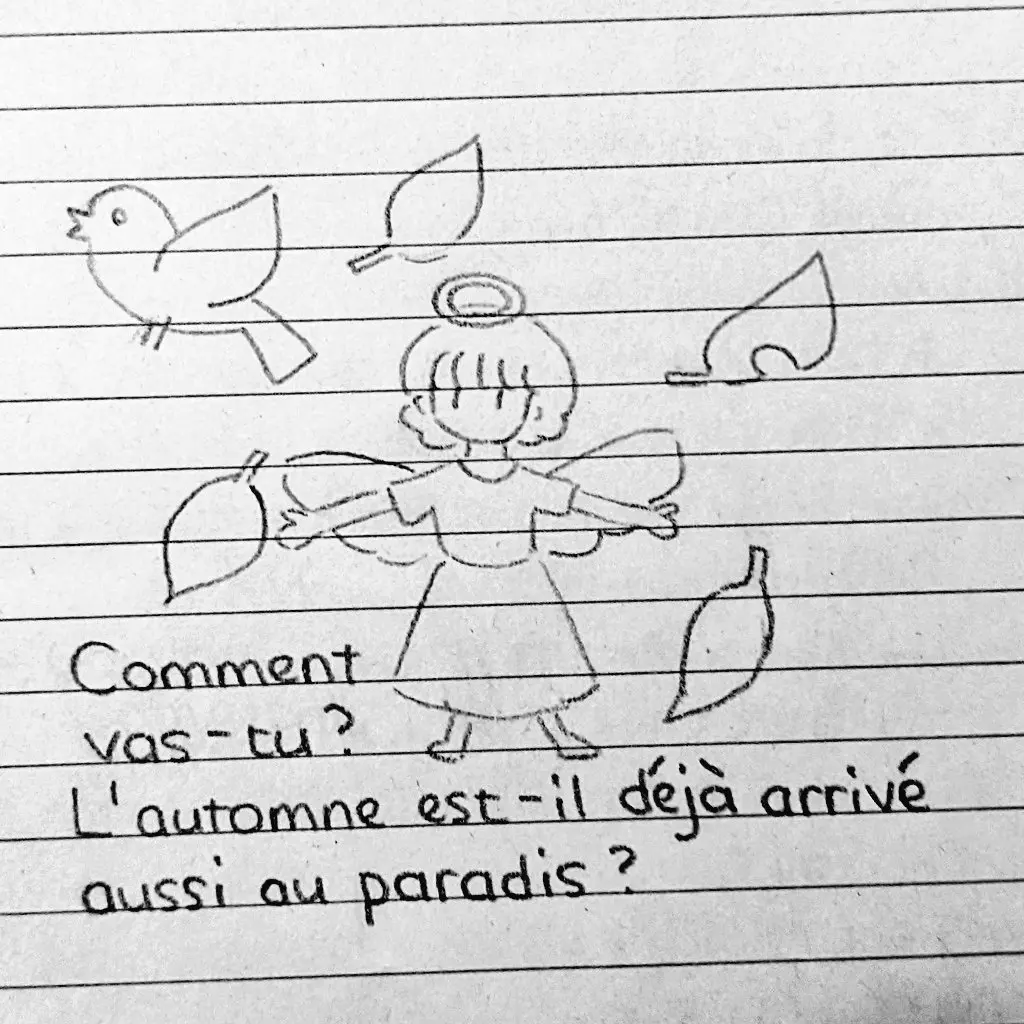 Comment
vas-tu?
L'automne est-il déjà arrivé
aussi au paradis?